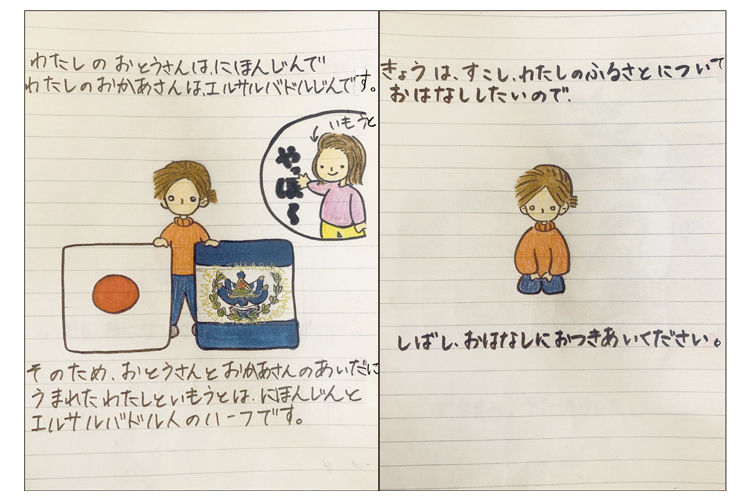 わたしの おとうさんは、にほんじんで
わたしのおかあさんは、エルサルバドルじんです。
いもうと
やっほ〜
そのため、おとうさんとおかあさんのあいだに
うまれたわたしといもうとは、にほんじんと
エルサルバドル人のハーフです。
きょうは、すこし、わたしのふるさとについて
おはなししたいので、
しばし、おはなしにおつきあいください。